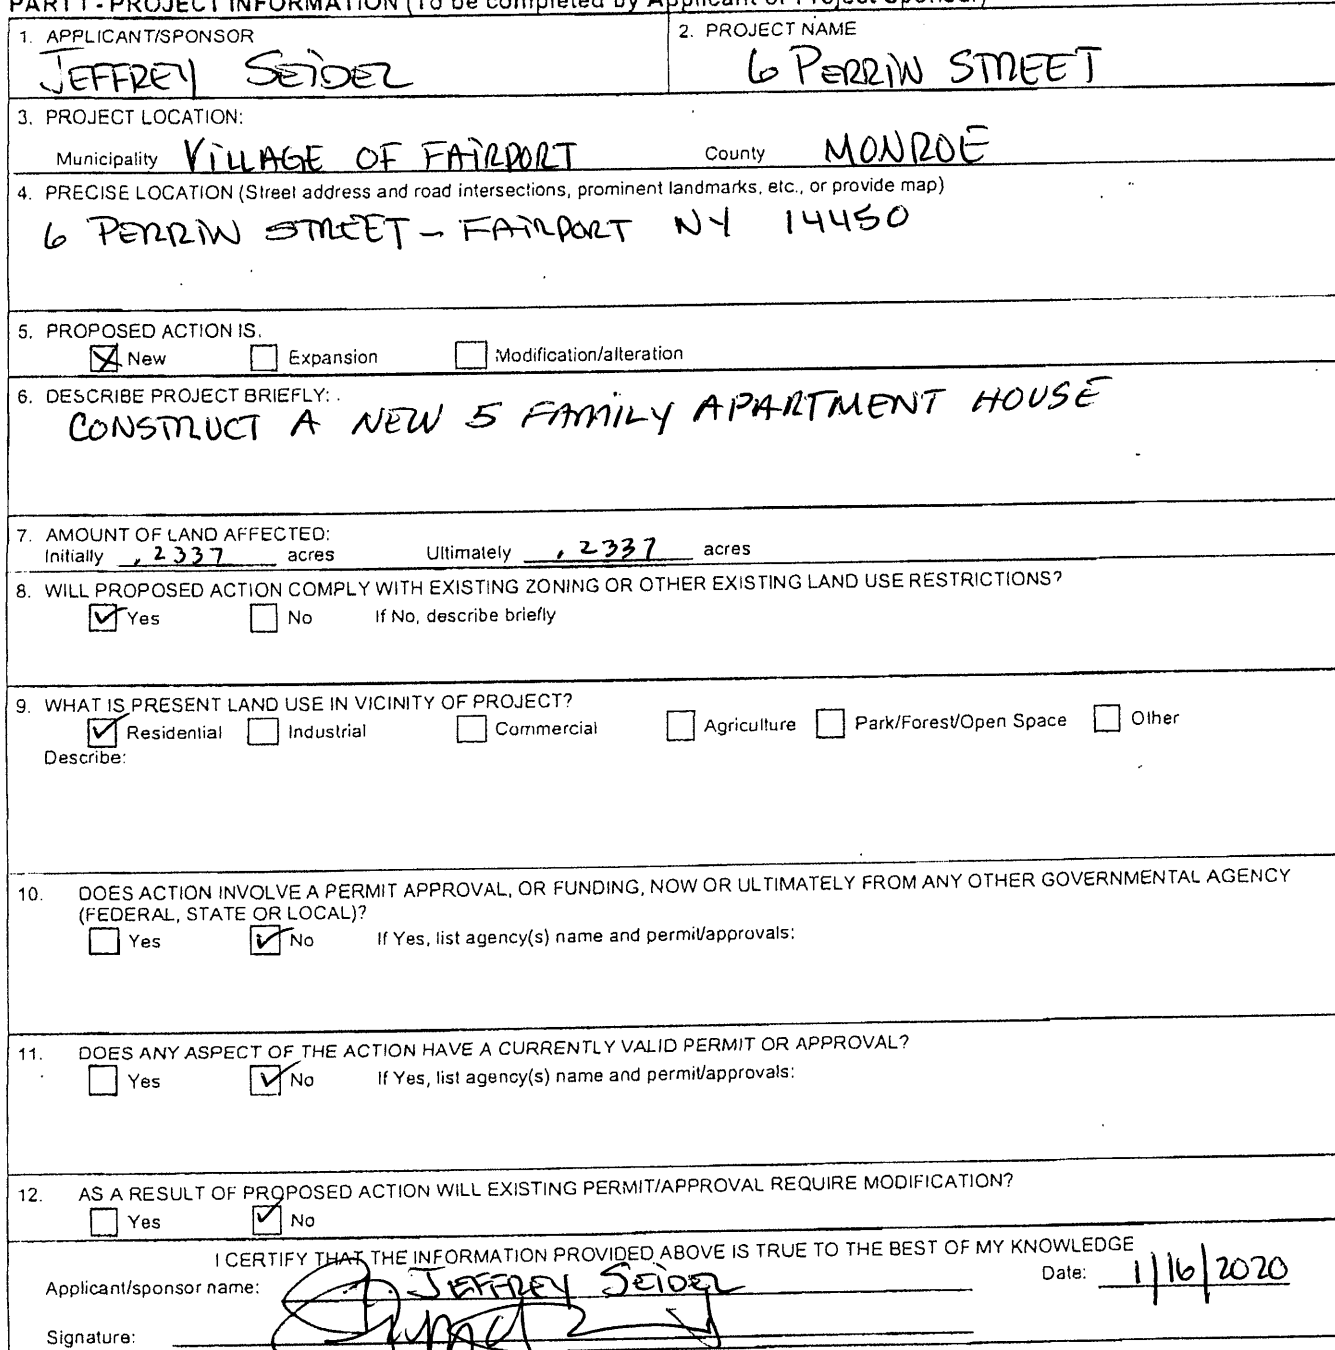 PART I - PROJECT INFORMATION (To be completed by Applicant or Project Sponsor)
1. APPLICANT/SPONSOR
JEFFREY SEIDEL
2. PROJECT NAME
6 PERRIN STREET
3. PROJECT LOCATION:
Municipality VILLAGE OF FAIRPORT County MONROE
4. PRECISE LOCATION (Street address and road intersections, prominent landmarks, etc., or provide map)
6 PERRIN STREET - FAIRPORT NY 14450
5. PROPOSED ACTION IS.
New Expansion Modification/alteration
6. DESCRIBE PROJECT BRIEFLY:
CONSTRUCT A NEW 5 FAMILY APARTMENT HOUSE
7. AMOUNT OF LAND AFFECTED:
Initially .2337 acres Ultimately .2337 acres
8. WILL PROPOSED ACTION COMPLY WITH EXISTING ZONING OR OTHER EXISTING LAND USE RESTRICTIONS?
Yes No If No, describe briefly
9. WHAT IS PRESENT LAND USE IN VICINITY OF PROJECT?
Residential Industrial Commercial Agriculture Park/Forest/Open Space Other
Describe:
10. DOES ACTION INVOLVE A PERMIT APPROVAL, OR FUNDING, NOW OR ULTIMATELY FROM ANY OTHER GOVERNMENTAL AGENCY
(FEDERAL, STATE OR LOCAL)?
Yes No If Yes, list agency(s) name and permit/approvals:
11. DOES ANY ASPECT OF THE ACTION HAVE A CURRENTLY VALID PERMIT OR APPROVAL?
Yes No If Yes, list agency(s) name and permit/approvals:
12. AS A RESULT OF PROPOSED ACTION WILL EXISTING PERMIT/APPROVAL REQUIRE MODIFICATION?
Yes No
I CERTIFY THAT THE INFORMATION PROVIDED ABOVE IS TRUE TO THE BEST OF MY KNOWLEDGE
Applicant/sponsor name: JEFFREY SEIDEL Date: 1/16/2020
Signature: